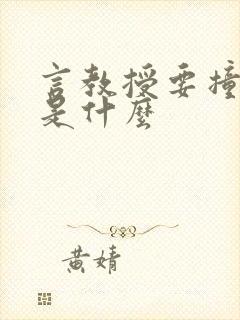 言教授要撞
是什麼
黄婧